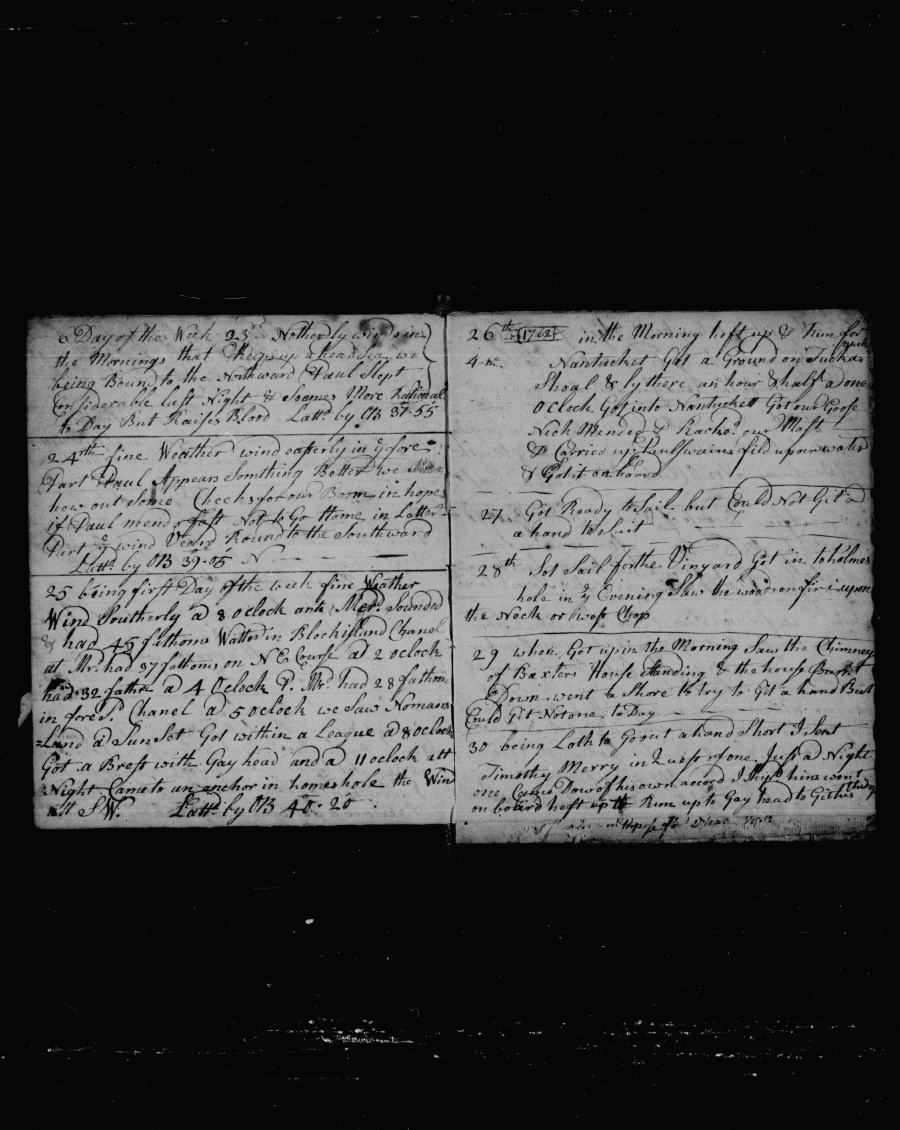 6 Day of the Week 23 Notherly winds in
the Mornings that keeps up a head Sea we
being Bound to the Northward Paul Slept
Considerable last Night & Seems More Rational
to Day But Raises Blood Latt by OB 37-55
24th fine Weather wind easterly in ye fore
Part Paul Appears Somthing Better we
how out Some Cheeks for our Boom in hopes
if Paul mends fast Not to Go Home in Latter
Part ye wind Veard Round to the Southward
Latt by OB 39-05 N
25 being first Day of the week fine Weather
Wind Southerly a 8 oclock ante Mer. Sounded
& had 45 fathoms Watter in Block island Chanel
at Mr. had 37 fathoms on N E Course at 2 oclock
had 32 fathm a 4 Oclock P. Mr had 28 fathom
in fore Sd Chanel a 5 oclock we Saw Nomans
Land a Sun Set Got within a League a 8 oclock
Got a Brest with Gay head and a 11 oclock att
Night Came to an anchor in homes hole the Wind
att SW. Latt by OB 40-20
26th 1762 in the Morning heft up & Run for
4 m. Nantucket Got a Ground on Tuckanuck
Shoal & ly there an hour & half a one
Oclock Got into Nantuckett Got our Goose
Neck Mended & our Mast
& Carried up Paul Swains fild up our watter
& Got it on board
27 Got Ready to Sail but Could Not Git a
a hand to Suit
28th Sot Sail for the Vinyard Got in to holmes
hole in ye Evening Saw the woods on fire upon
the Neck or west Chop
29 when Got up in the Morning Saw the Chimney
of Baxters House Standing & the house Burnt
Down went a Shore to try to Git a hand But
Could Git Not one to Day
30 being Loth to Go out a hand Short I Sent
Timothy Merry in Quest of one Just a Night
one Came Down of his own accord I Shipt him went
on board heft up & Run up to Gay head to Git his